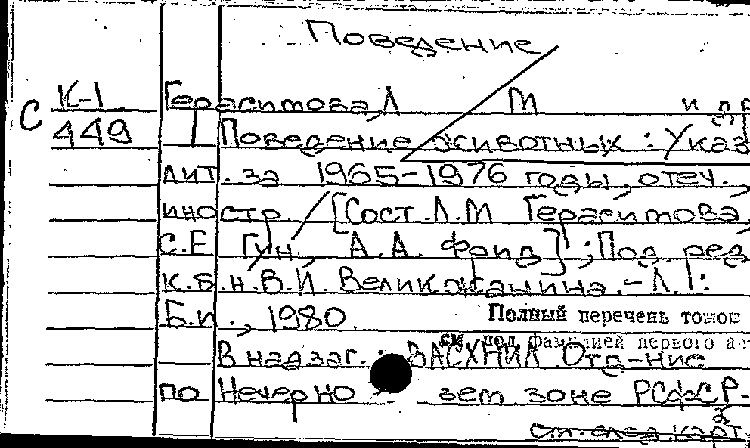 Поведение
К-1 Герасимова, Л М и др
С 449 Поведение животных : Указ
лит. за 1965-1976 годы, отеч.,
иностр. / [Сост. Л.М Герасимова,
С.Е Гин, А.А. Фрид] ; Под ред
к.б.н. В.И. Великжанина. - Л.:
Б.и., 1980. Полный перечень томов
см. под фамилией первого
В надзаг.: ВАСХНИЛ Отд-ние
по Нечерно зем зоне РСФСР-
См. след. карт.